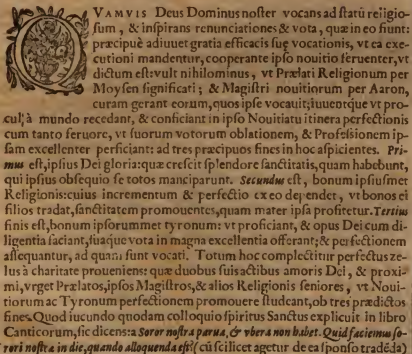 QVAMVIS Deus Dominus noster vocans ad statũ religio-
sum, & inspirans renunciationes & vota, quæ in eo fiunt:
præcipuè adiuuet gratia efficacis suę vocationis, vt ea exe-
cutioni mandentur, cooperante ipso nouitio feruenter, vt
dictum est: vult nihilominus, vt Prælati Religionum per
Moysen significati; & Magistri nouitiorum per Aaron,
curam gerant eorum, quos ipse vocauit; iuuentque vt pro-
cul, à mundo recedant, & conficiant in ipso Nouitiatu itinera perfectionis
cum tanto feruore, vt suorum votorum oblationem, & Professionem ip-
sam excellenter perficiant: ad tres præcipuos fines in hoc aspicientes. Pri-
mus est, ipsius Dei gloria: quæ crescit splendore sanctitatis, quam habebunt,
qui ipsius obsequio se totos manciparunt. Secundus est, bonum ipsiusmet
Religionis: cuius incrementum & perfectio ex eo dependet, vt bonos ei
filios tradat, sanctitatem promouentes, quam mater ipsa profitetur. Tertius
finis est, bonum ipsorummet tyronum: vt proficiant, & opus Dei cum di-
ligentia faciant, suaque vota in magna excellentia offerant; & perfectionem
assequantur, ad quam sunt vocati. Totum hoc complectitur perfectus ze-
lus à charitate proueniens: quæ duobus suis actibus amoris Dei, & proxi-
mi, vrget Prælatos, ipsos Magistros, & alios Religionis seniores, vt Noui-
tiorum ac Tyronum perfectionem promouere studeant, ob tres prædictos
fines. Quod iucundo quodam colloquio spiritus Sanctus explicuit in libro
Canticorum, sic dicens: a Soror nostra parua, & vbera non habet. Quid faciemus so-
rori nostræ in die, quando alloquenda est? (cũ scilicet agetur de ea sponso tradẽda)